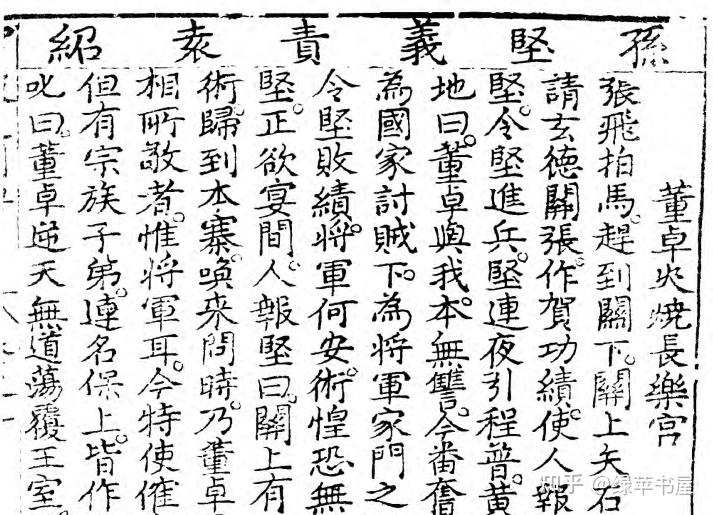 孫堅義責袁紹
董卓火燒長樂宮
張飛拍馬趕到關下。關上矢石
請玄德關張。作賀功績。使人報
堅。令堅進兵。堅連夜引程普黃
地曰。董卓與我。本無讐。今番奮
為國家討賊。下。為將軍家門之
令堅敗績。將軍何安。術惶恐無
堅。正欲宴間。人報堅曰。關上有
術。歸到本寨。喚來問時。乃董卓
相所敬者。惟將軍耳。今特使傕
但有宗族子弟。連名保上。皆作
叱曰。董卓逆天無道。蕩覆王室。
知乎 @绿苹书屋